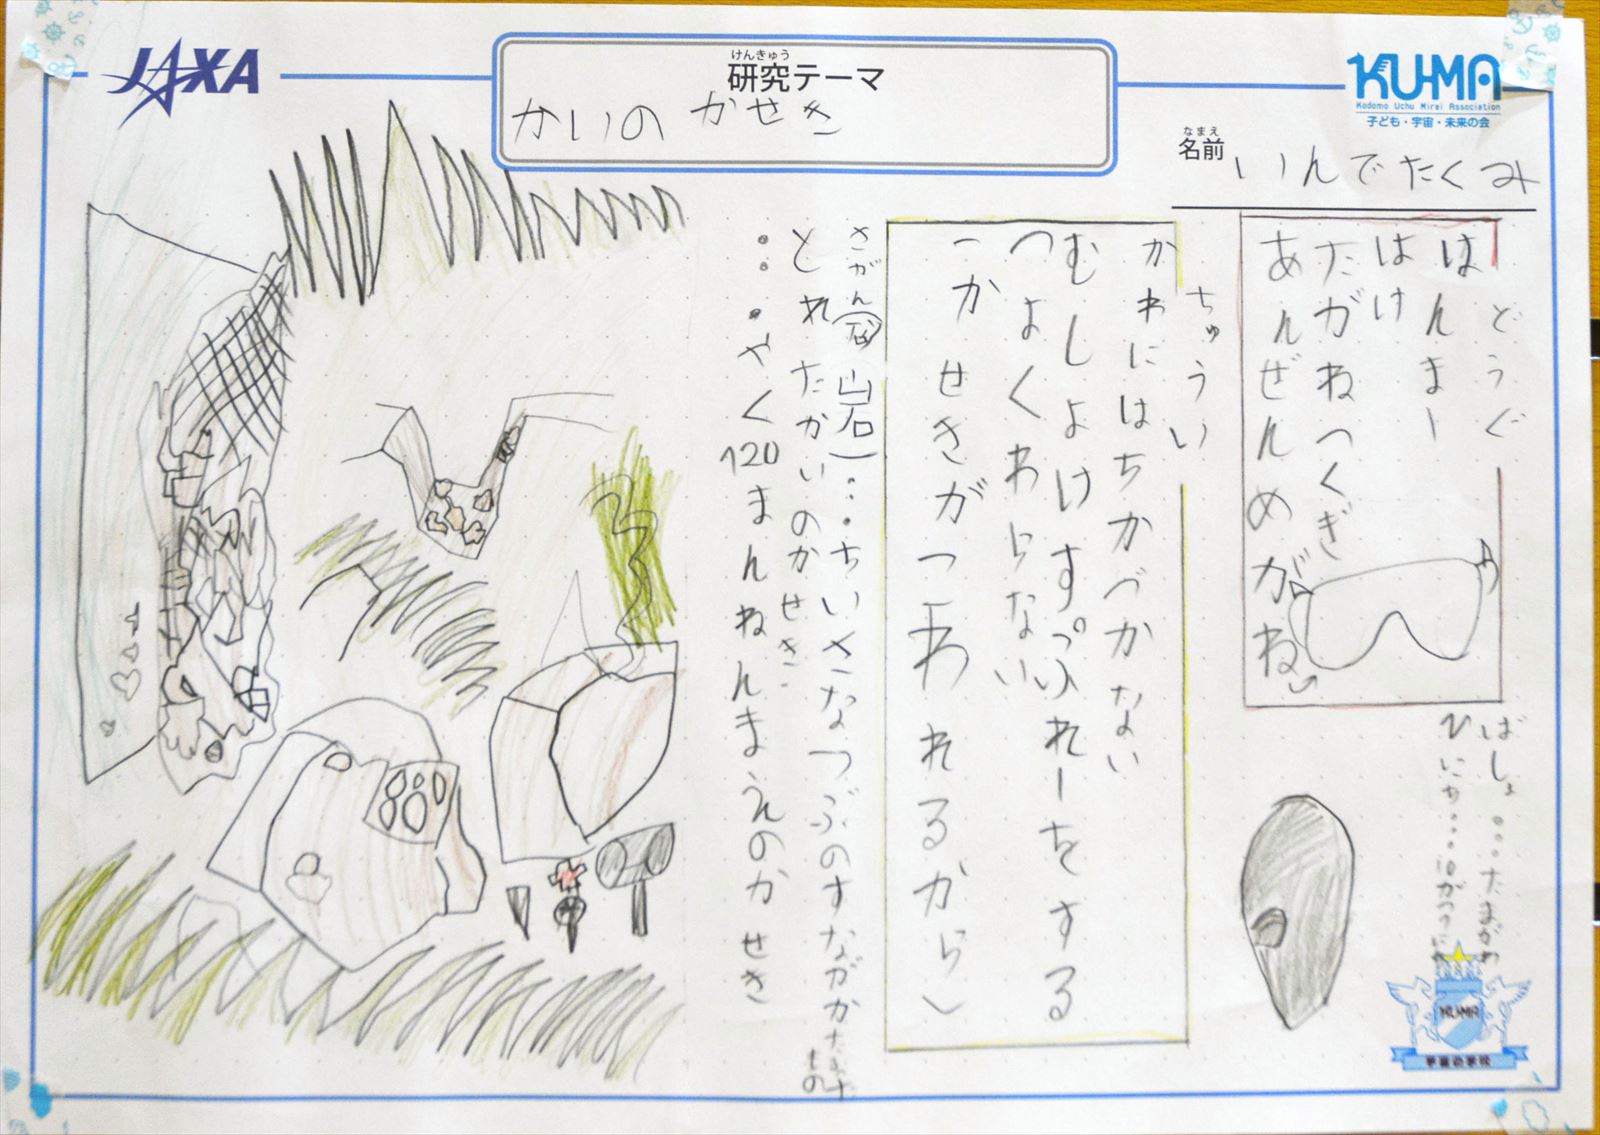 JAXA
けんきゅう
研究テーマ
かいの かせき
KU-MA
Kodomo Uchu Mirai Association
子ども・宇宙・未来の会
なまえ
名前
いんでたくみ
どうぐ
はんまー
はけ
たがねつくぎ
あんぜんめがね
ばしょ…たまがわ
ちゅうい
かわにはちかづかない
むしよけすぷれーをする
つよくわらない
(かせきがつ
われるから)
さがん
岩)…ちいさなつぶのすながかた
もの
とれたかいのかせき
…・やく120まんねんまえのかせき
KU-MA
宇宙の学校